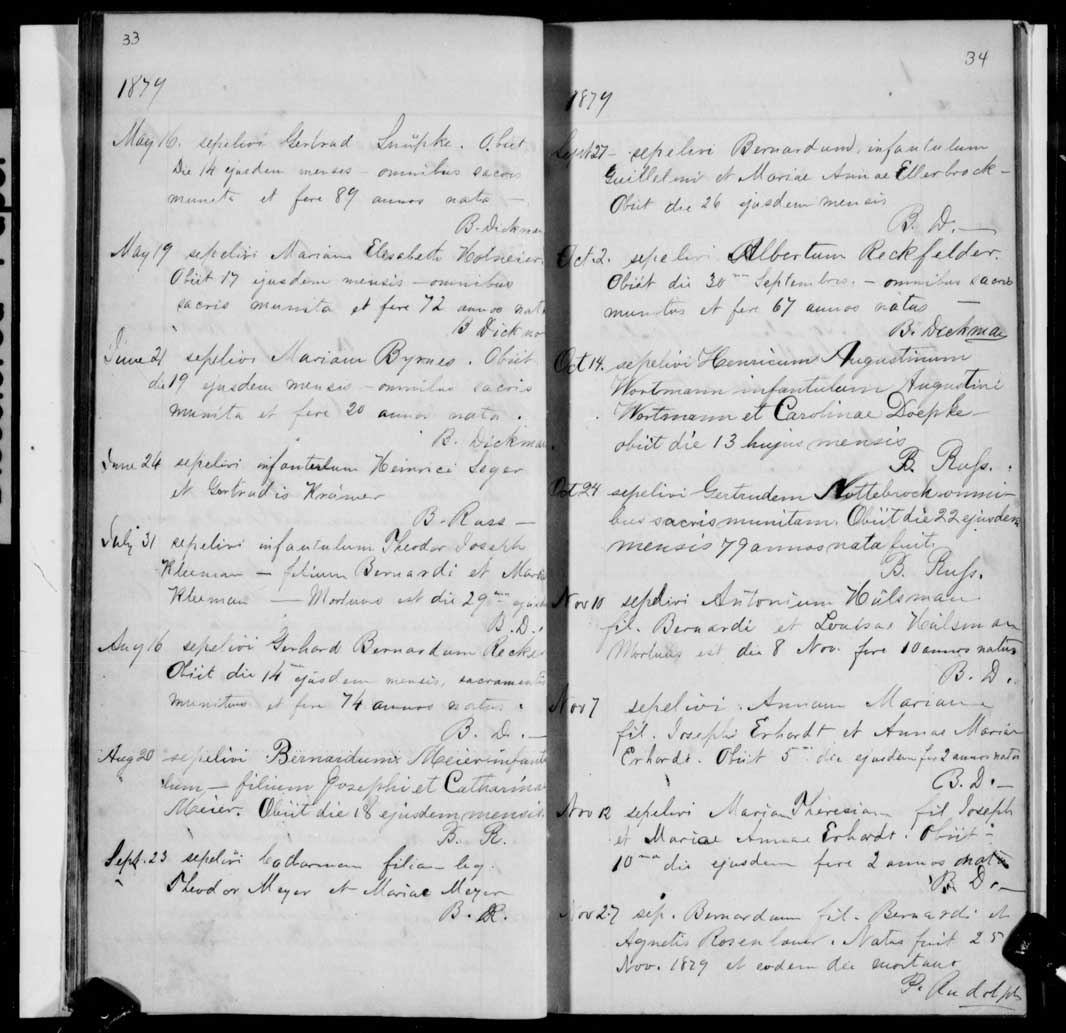 33
1879
May 16. sepelivi Gertrud Snüpke. Obiit
Die 14 ejusdem mensis – omnibus sacris
munita et fere 89 annos nata –
B. Dickman
May 19 sepelivi Mariam Elesabeth
Obiit 17 ejusdem mensis – omnibus
sacris munita et fere 72 annos nata
B Dickman
June 21 sepelivi Mariam Byrnes. Obiit
die 19 ejusdem mensis – omnibus sacris
munita et fere 20 annos nata.
B. Dickman
June 24 sepelivi infantulum Heinrici Seger
et Gertrudis Krämer
B. Russ –
July 31 sepelivi infantulum Theodor Joseph
Kleeman – filium Bernardi et Maria
Kleeman — Mortuus est die 29
B. D.
Aug 16 sepelivi Gerhard Bernardum Recke
Obiit die 14 ejusdem mensis, sacramentis
munitus et fere 74 annos natus.
B. D. –
Aug 20 sepelivi Bernardum Meier infantu
lum – filium Josephi et Catharina
Meier. Obiit die 18 ejusdem mensis.
B. R.
Sept. 23 sepelivi filia leg.
Theodor Meyer et Mariae Meyer
B. R.
34
1879
Sept 27 – sepelivi Bernardum, infantulum
Guillelmi et Mariae Annae Ellerbrock –
Obiit die 26 ejusdem mensis
B. D. —
Oct. 2. sepelivi Albertum Reckfelder.
Obiit die 30 Septembris. – omnibus sacris
munitus et fere 67 annos natus –
B. Dickman
Oct 14. sepelivi Henricum Augustinum
Wortmann infantulum Augustini
Wortmann et Carolinae Doepke –
obiit die 13 hujus mensis
B. Russ.
Oct 24 sepelivi Gertrudem Nottebrock omni-
bus sacris munitam. Obiit die 22 ejusdem
mensis 79 annos nata fuit.
B. Russ.
Nov 10 sepelivi Antonium Hülsman
fil. Bernardi et Louisae Hülsman
Mortuus est die 8 Nov. fere 10 annos natus
B. D.
Nov 7 sepelivi Annam Mariam
fil. Josephi Erhardt et Annae Mariae
Erhardt. Obiit 5 die ejusdem fere 2 annos nata
B. D. –
Nov 12 sepelivi Mariam Theresiam fil Joseph
et Mariae Annae Erhardt. Obiit –
10 die ejusdem fere 2 annos nata
B. D. –
Nov 27 sep. Bernardum fil. Bernardi et
Agnetis Rosenlauer. Natus fuit 25
Nov. 1879 et eodem die mortuus
P. Rudolph